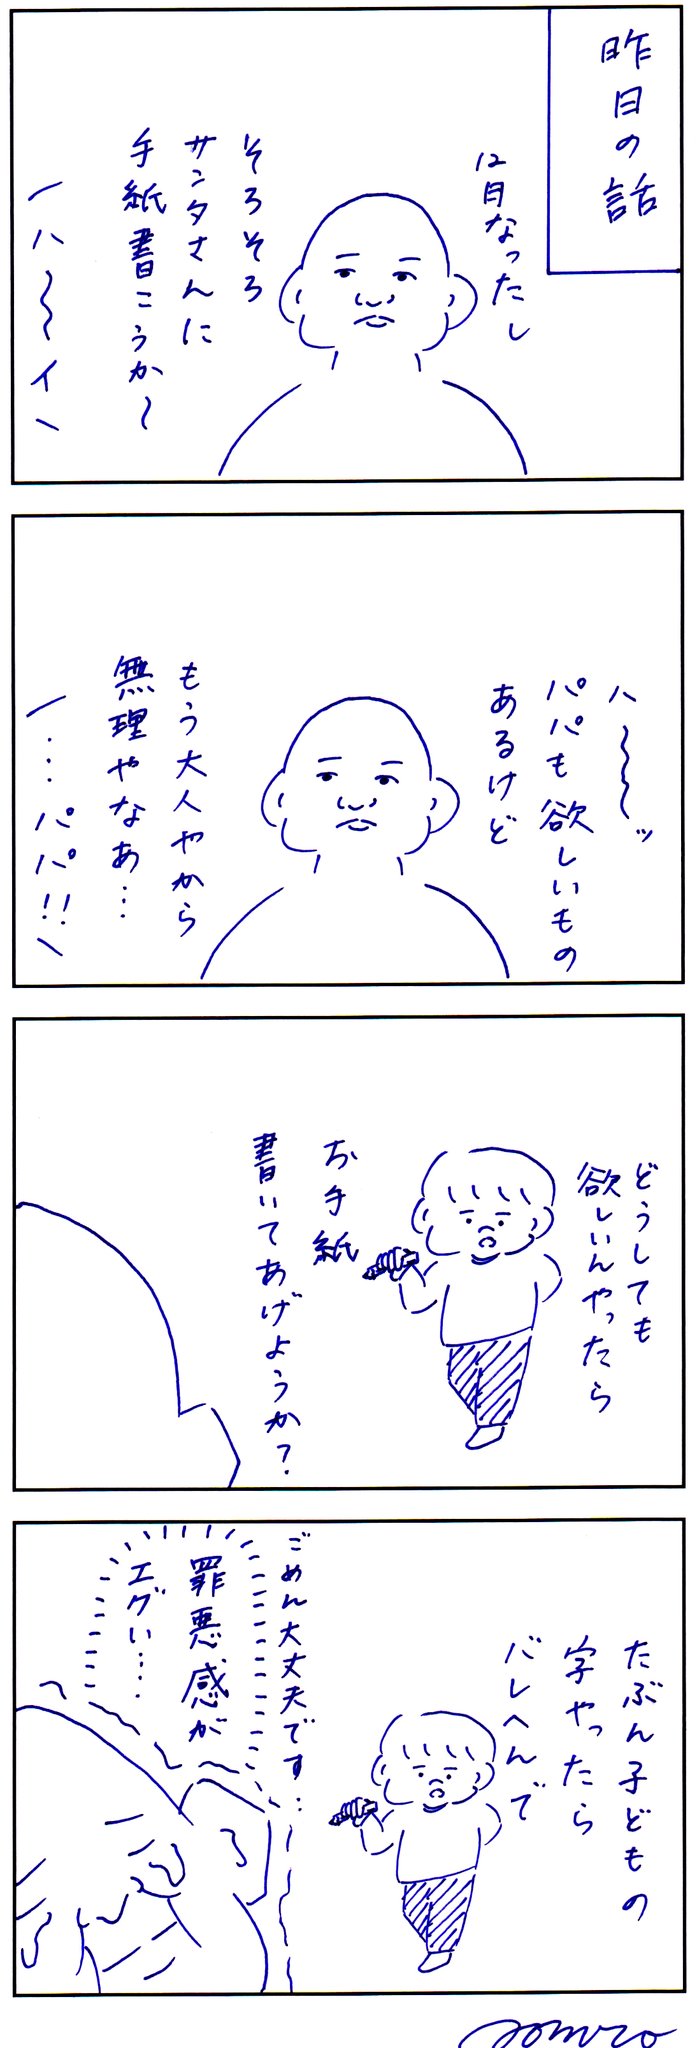 昨日の話
12月なったし
そろそろ
サンタさんに
手紙書こうか〜
ハ〜〜イ
ハ〜〜〜ッ
パパも欲しいもの
あるけど
もう大人やから
無理やなあ…
…パパ!!
どうしても
欲しいんやったら
お手紙
書いてあげようか？
たぶん子どもの
字やったら
バレへんで
ごめん大丈夫です…
罪悪感が
エグい…